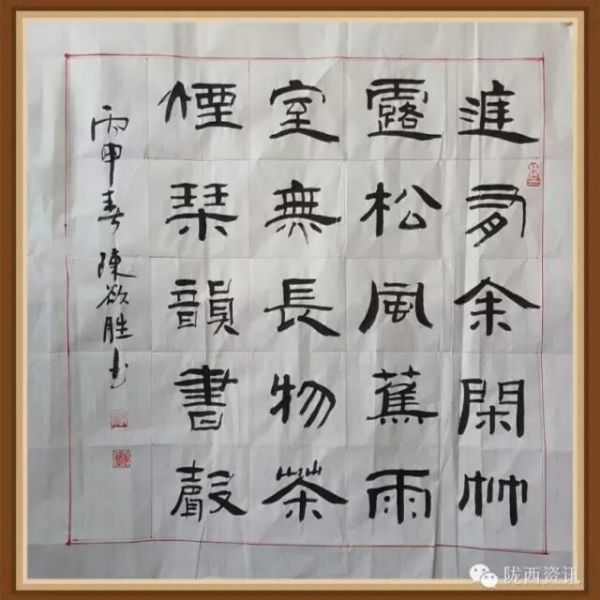 進有余閑竹
露松風蕉雨
室無長物茶
煙琹韻書聲
丙申春 陳欲胜书
陇西资讯